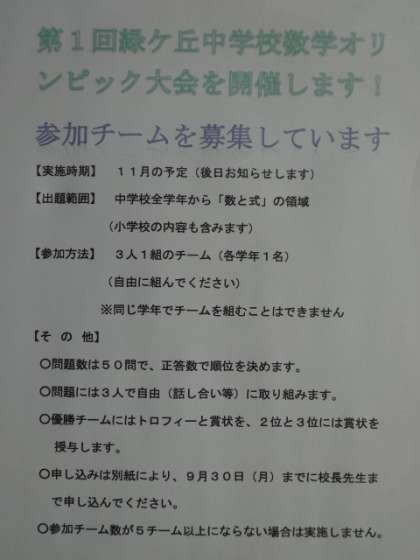 第１回緑ケ丘中学校数学オリ
ンピック大会を開催します！
参加チームを募集しています
【実施時期】　１１月の予定（後日お知らせします）
【出題範囲】　中学校全学年から「数と式」の領域
（小学校の内容も含みます）
【参加方法】　３人１組のチーム（各学年１名）
（自由に組んでください）
※同じ学年でチームを組むことはできません
【そ　の　他】
〇問題数は５０問で、正答数で順位を決めます。
〇問題には３人で自由（話し合い等）に取り組みます。
〇優勝チームにはトロフィーと賞状を、２位と３位には賞状を
授与します。
〇申し込みは別紙により、９月３０日（月）までに校長先生ま
で申し込んでください。
〇参加チーム数が５チーム以上にならない場合は実施しません。